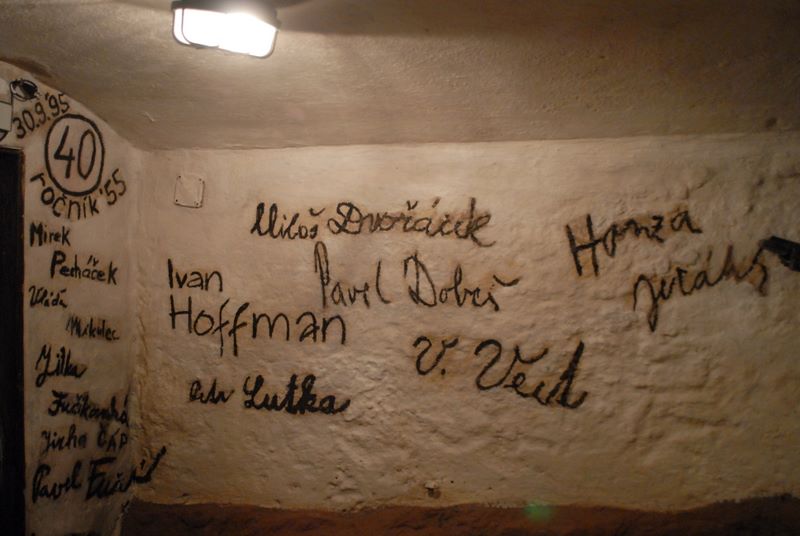 30.9.'95
40
ročník '55
Mirek
Pecháček
Vláďa
Mikulec
Jitka
Fučíkovská
Jirka ČÁP
Pavel
Miloš Dvořáček
Ivan
Hoffman
Pavel Dobeš
V. Veit
Petr Lutka
Honza